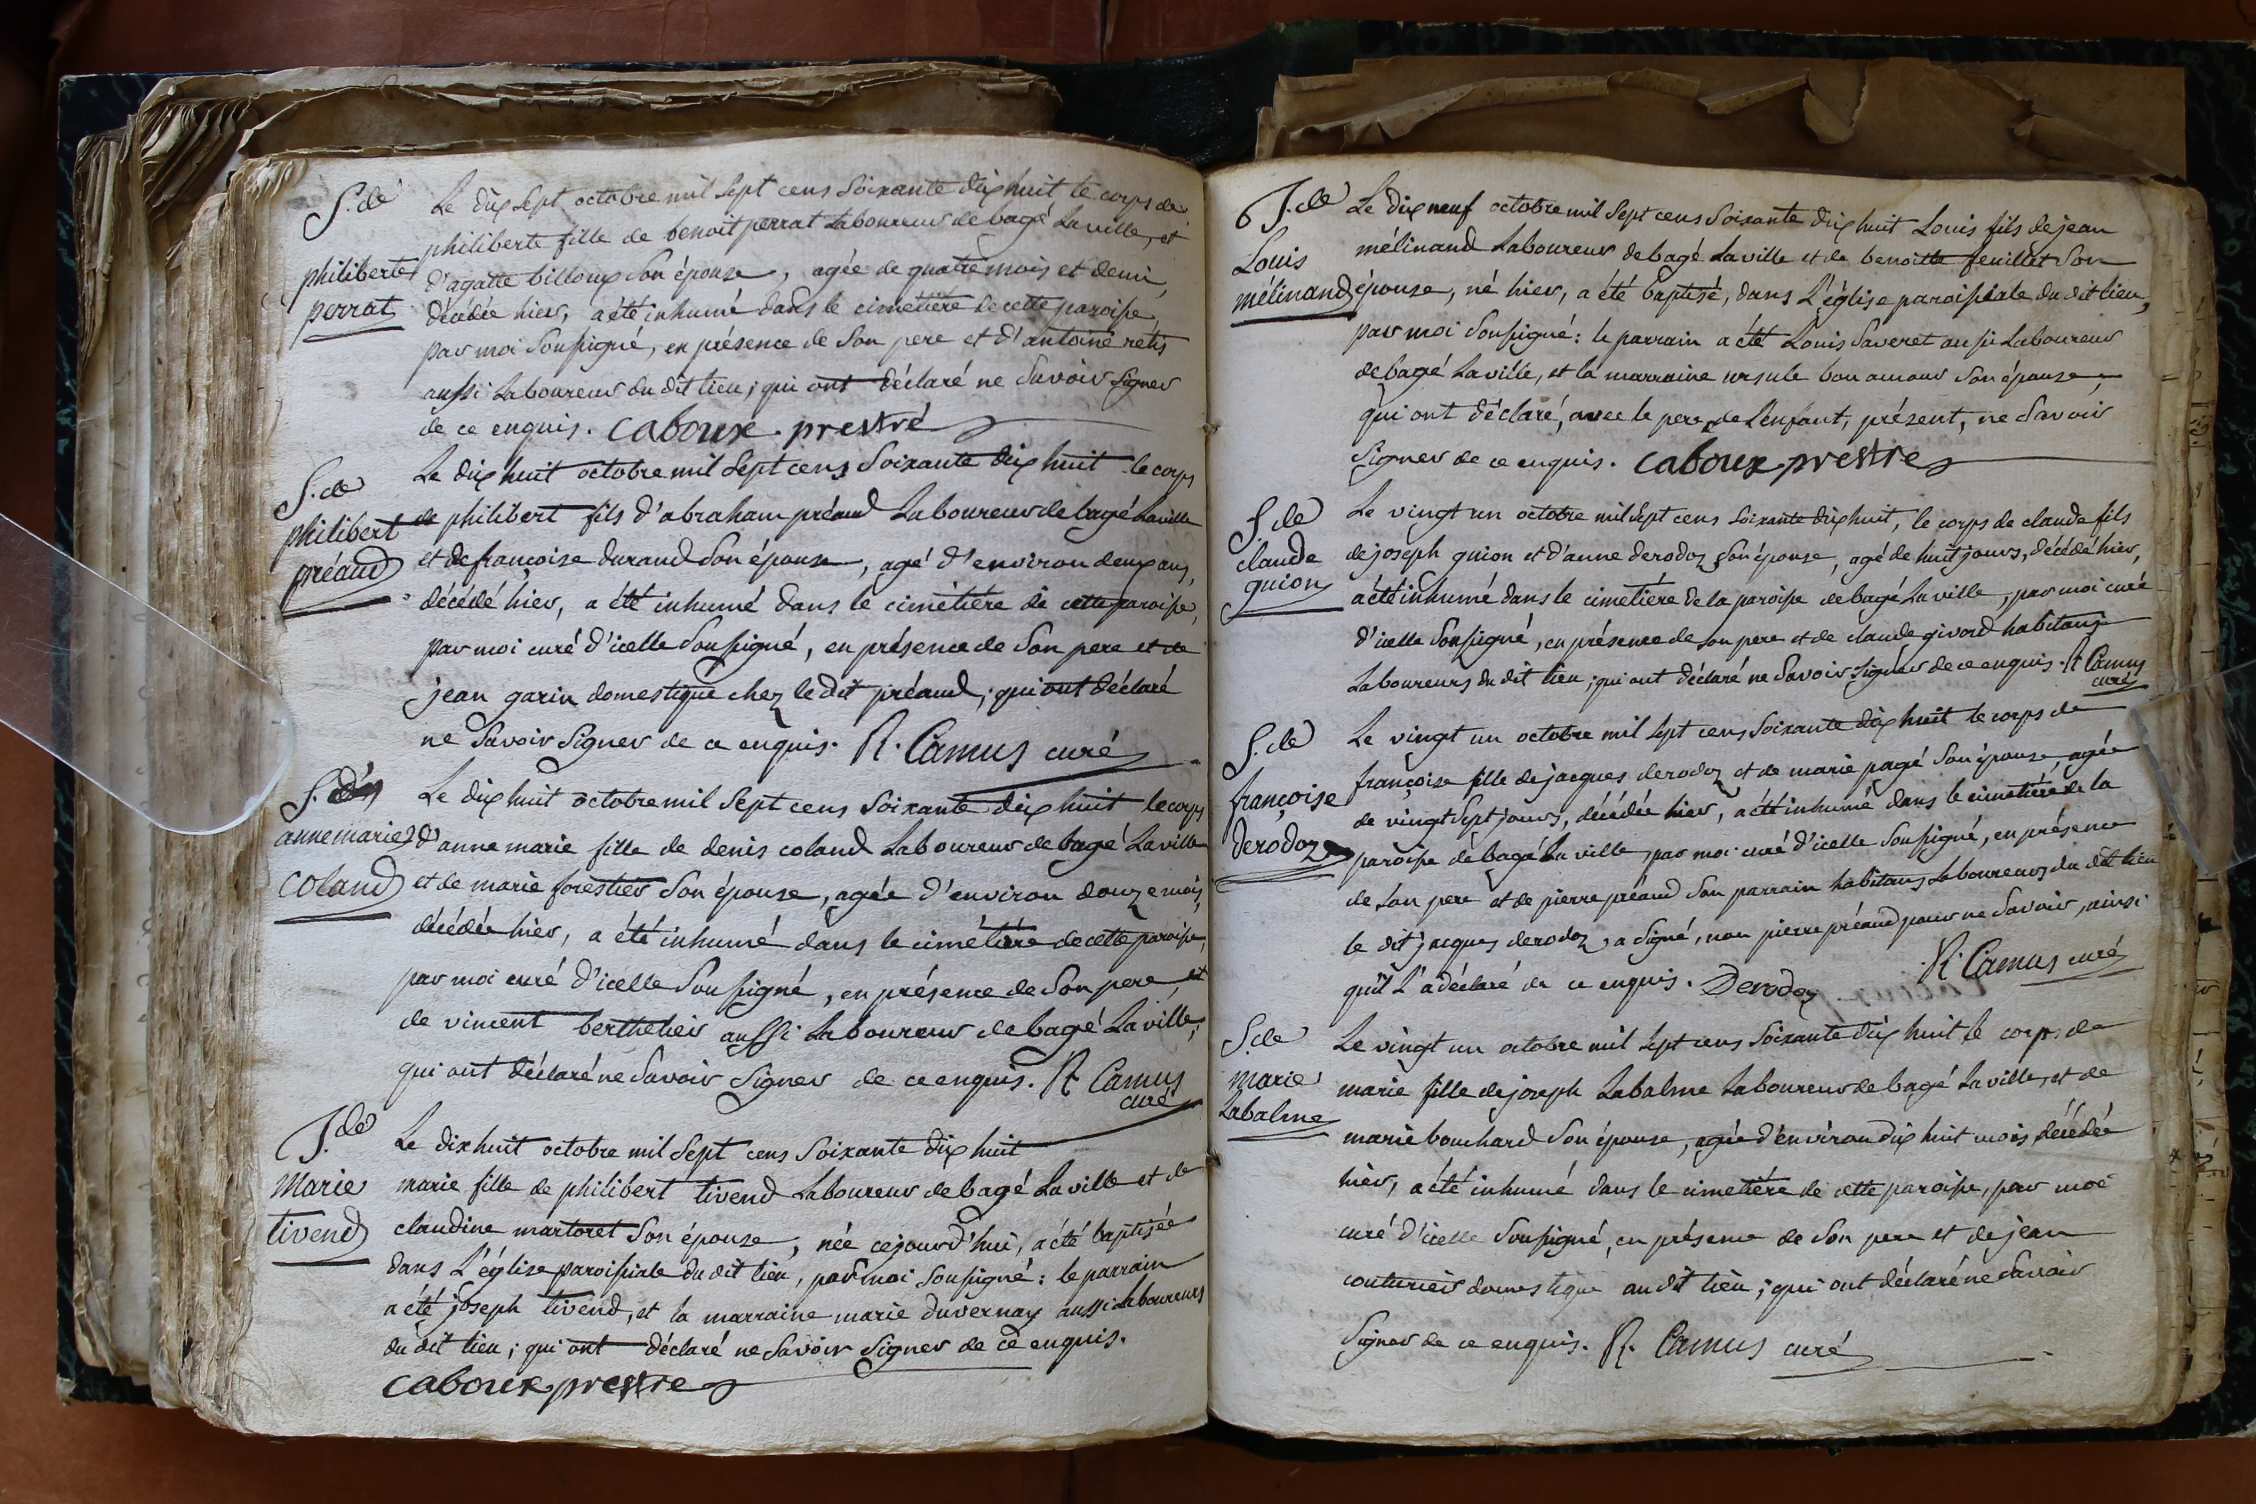 S. de
philiberte
perrat
Le dix sept octobre mil sept cens soixante dix huit le corps de
philiberte fille de benoit perrat laboureur de bagé la ville, et
d'agatte billoux son épouse, agée de quatre mois et demi,
décédée hier, a été inhumé dans le cimetiere de cette paroisse,
par moi soussigné, en présence de son pere et d'antoine retis
aussi laboureur du dit lieu; qui ont déclaré ne savoir signer
de ce enquis. caboux prestre
S. de
philibert
préaud
Le dix huit octobre mil sept cens soixante dix huit le corps
de philibert fils d'abraham préaud laboureur de bagé la ville
et de françoise durand son épouse, agé d'environ deux ans,
décédé hier, a été inhumé dans le cimétiére de cette paroisse,
par moi curé d'icelle soussigné, en présence de son pere et de
jean garin domestique chez le dit préaud; qui ont déclaré
ne savoir signer de ce enquis. R. Camus curé
S. d'
anne marie
coland
Le dix huit octobre mil sept cens soixante dix huit le corps
d'anne marie fille de denis coland laboureur de bagé la ville
et de marie forestier son épouse, agée d'environ douze mois,
décédée hier, a été inhumé dans le cimétiére de cette paroisse,
par moi curé d'icelle soussigné, en présence de son pere et
de vincent berthelier aussi laboureur de bagé la ville;
qui ont déclaré ne savoir signer de ce enquis. R. Camus
curé
J. de
Marie
tivend
Le dix huit octobre mil sept cens soixante dix huit
marie fille de philibert tivend laboureur de bagé la ville et de
claudine martoret son épouse, née cejourd'hui, a été baptisée
dans l'église paroissiale du dit lieu, par moi soussigné: le parrain
a été joseph tivend, et la marraine marie duvernay aussi laboureurs
du dit lieu; qui ont déclaré ne savoir signer de ce enquis.
caboux prestre
6 J. de
Louis
mélinand
Le dix neuf octobre mil sept cens soixante dix huit Louis fils de jean
mélinand laboureur de bagé la ville et de benoitte feuillet son
épouse, né hier, a été baptisé, dans l'église paroissiale du dit lieu,
par moi soussigné: le parrain a été Louis saveret aussi laboureur
de bagé la ville, et la marraine ursule bon amour son épouse;
qui ont déclaré, avec le pere de l'enfant, présent, ne savoir
signer de ce enquis. caboux prestre
S. de
claude
guion
Le vingt un octobre mil sept cens soixante dix huit, le corps de claude fils
de joseph guion et d'anne derodoz son épouse, agé de huit jours, décédé hier,
a été inhumé dans le cimetiére de la paroisse de bagé la ville, par moi curé
d'icelle soussigné, en présence de son pere et de claude givord habitans
laboureurs du dit lieu; qui ont déclaré ne savoir signer de ce enquis. R Camus
curé
S. de
françoise
derodoz
Le vingt un octobre mil sept cens soixante dix huit le corps de
françoise fille de jacques derodoz et de marie pagé son épouse, agée
de vingt sept jours, décédée hier, a été inhumé dans le cimetiére de la
paroisse de bagé la ville, par moi curé d'icelle soussigné, en présence
de son pere et de pierre préaud son parrain habitans laboureurs du dit lieu
le dit jacques derodoz a signé, non pierre préaud pour ne savoir, ainsi
qu'il l'a déclaré de ce enquis. Derodoz R. Camus curé
S. de
marie
labalme
Le vingt un octobre mil sept cens soixante dix huit le corps de
marie fille de joseph labalme laboureur de bagé la ville, et de
marie bouchard son épouse, agée d'environ dix huit mois, décédée
hier, a été inhumé dans le cimetiére de cette paroisse, par moi
curé d'icelle soussigné, en présence de son pere et de jean
couturier domestique au dit lieu; qui ont déclaré ne savoir
signer de ce enquis. R. Camus curé